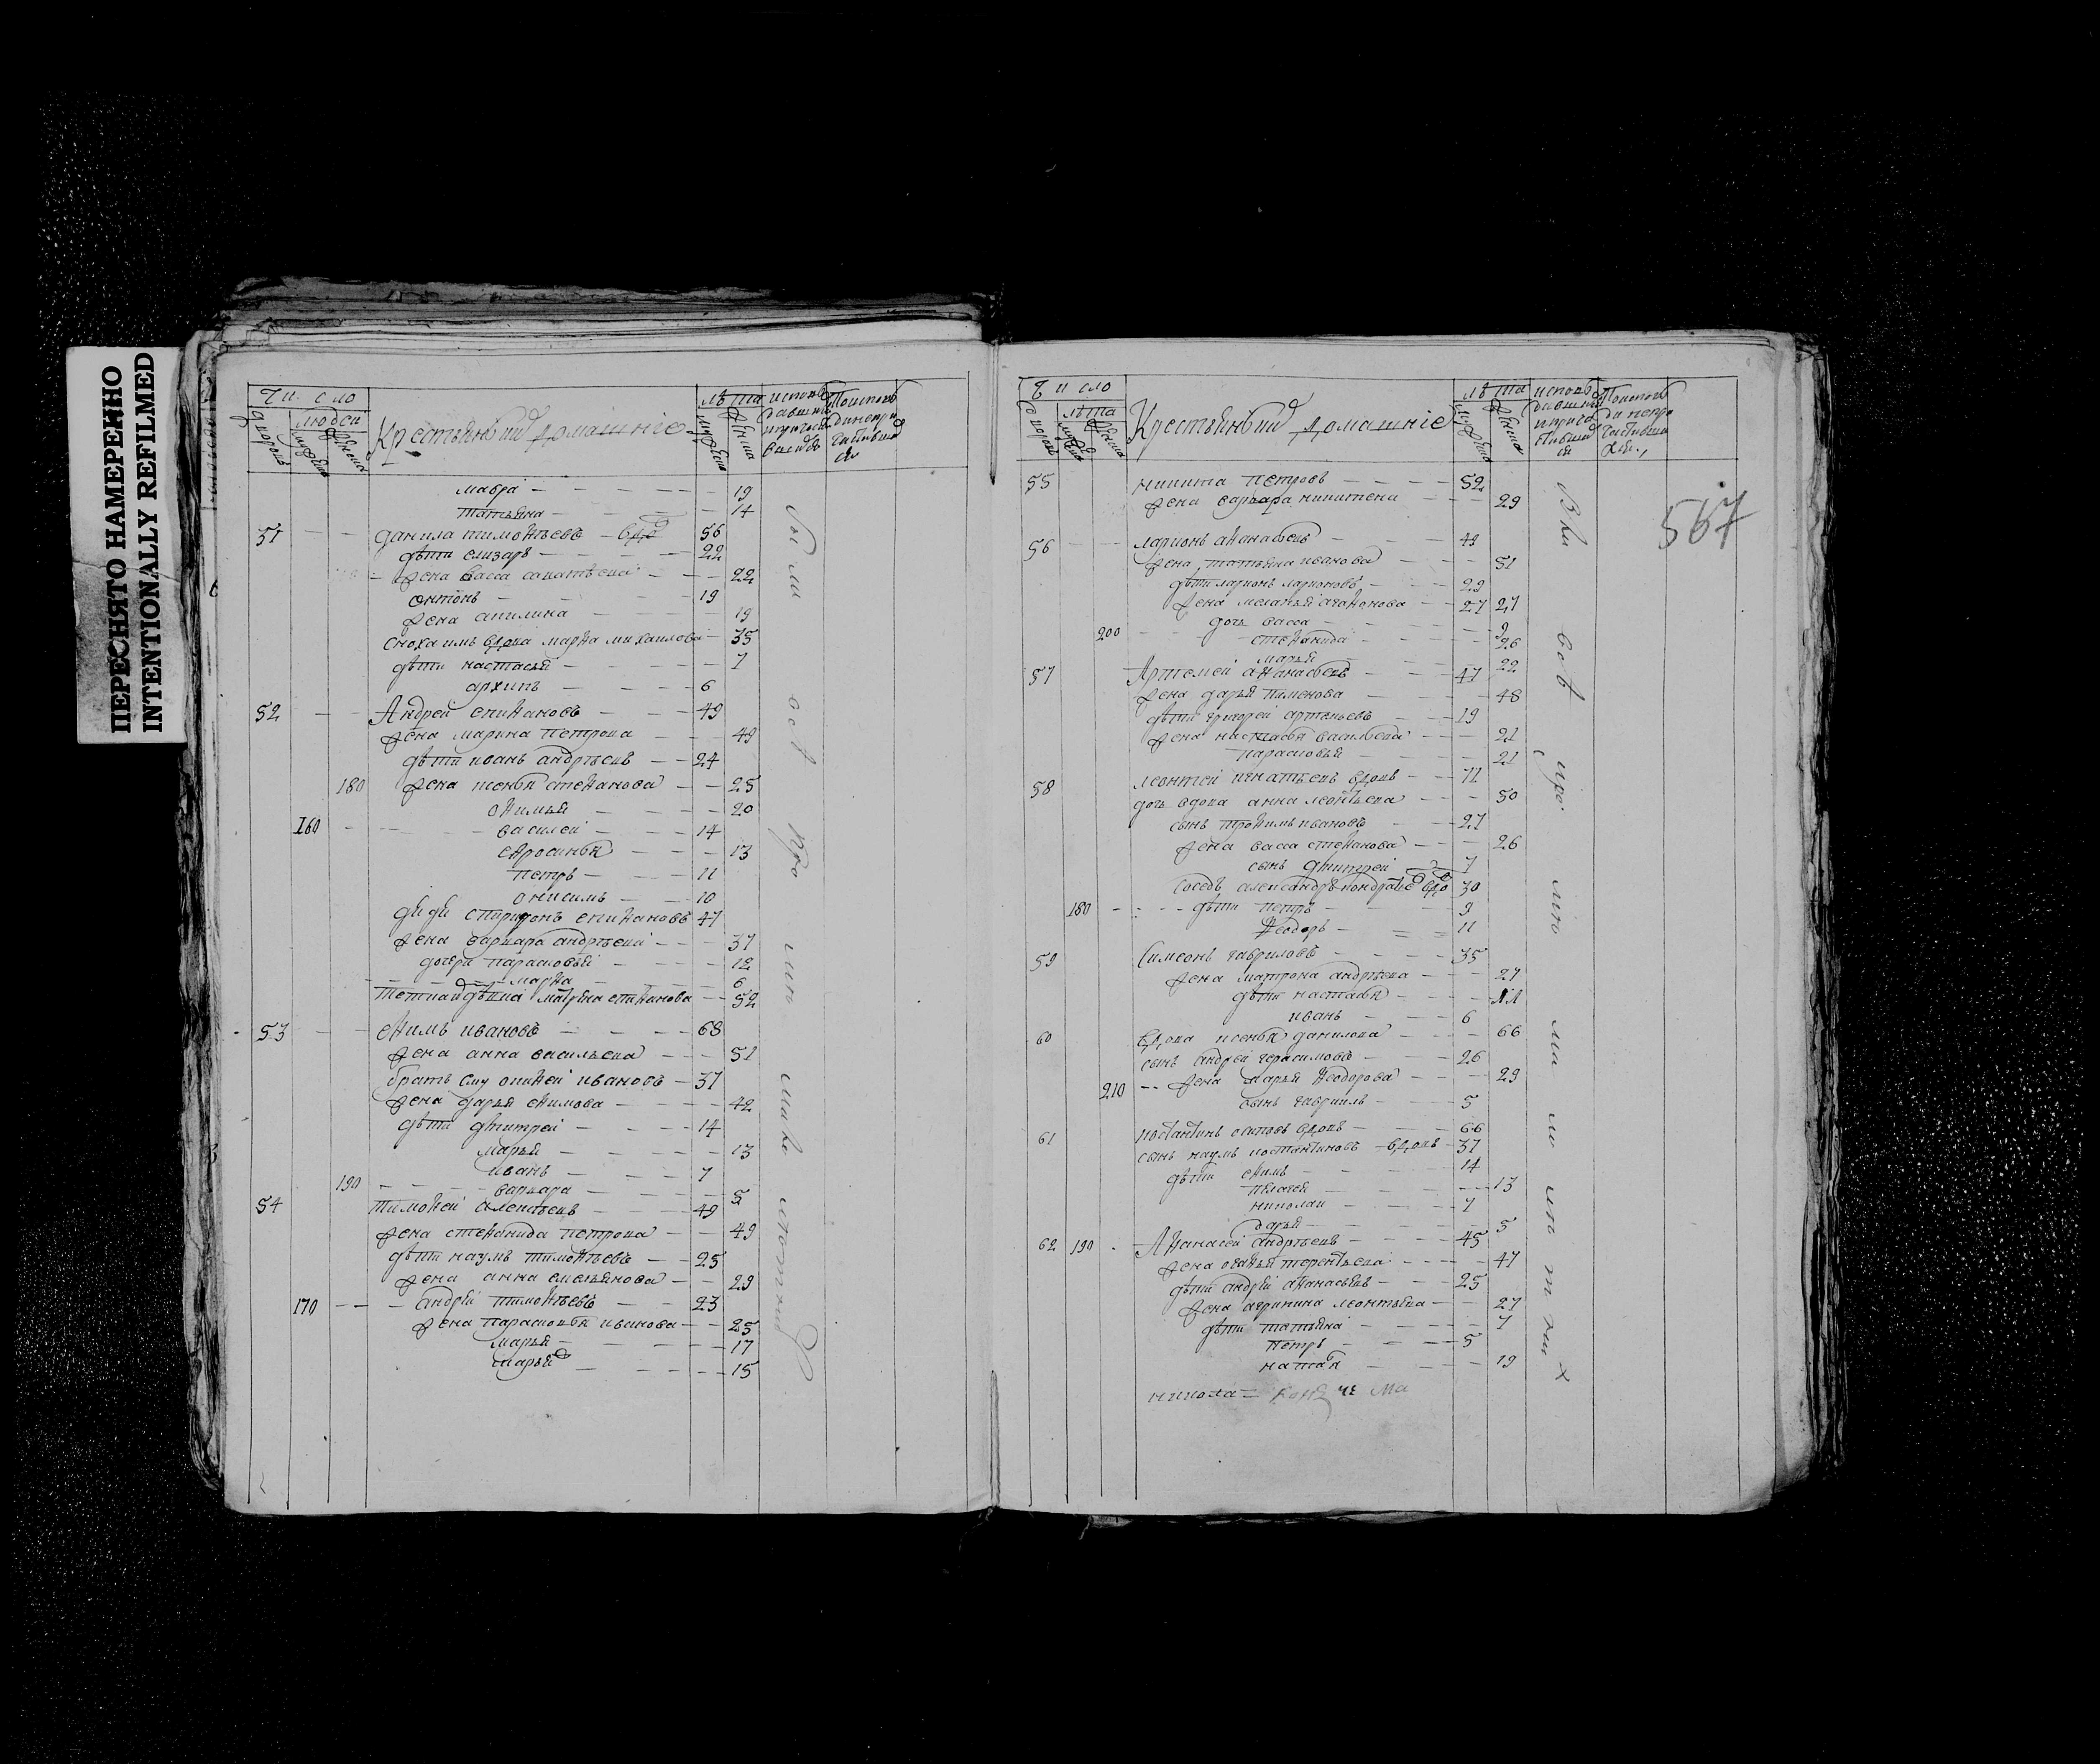 ПЕРЕСНЯТО НАМЕРЕННО
INTENTIONALLY REFILMED
Число
людеи
лѣта
Крестьяньския домашніе
мавра 19
татьяна 14
51 данила тимоѳѣевъ вдо 56
дѣти елизаръ 22
жена васса 22
онтонъ 19
жена акилина 19
сноха имъ вдова марѳа михаилова 35
дѣти настасья 7
архипъ 6
52 Андреи епиѳановъ 49
жена марина петрова 49
дѣти иванъ андрѣевъ 24
180 жена ксенья стеѳанова 25
оѳимья 20
160 василеи 14
еѳросинья 13
петръ 11
онисимъ 10
дядя спиридонъ епиѳановъ 47
жена варвара андрѣева 37
дочери парасковья 12
марѳа 6
матрена епиѳанова 52
53 еѳимъ ивановъ 68
жена анна васильева 51
братъ ему ивановъ 37
жена дарья еѳимова 42
дѣти дмитреи 14
марья 13
иванъ 7
190 варвара 5
54 тимоѳеи алексѣевъ 49
жена стеѳанида петрова 49
дѣти наумъ тимоѳѣевъ 25
жена анна емельянова 29
170 андреи тимоѳѣевъ 23
жена парасковья иванова 25
марья 17
марья 15
Число
лѣта
лѣта
Крестьяньския домашніе
567
55 никита петровъ 52
жена варвара никитена 29
56 ларионъ аѳанасьевъ 49
жена татьяна иванова 51
дѣти ларионъ ларионовъ 29
жена меланья агаѳонова 27 27
дочь васса 9
200 стеѳанида 26
марья 22
57 Артемеи аѳанасьевъ 47
жена дарья пименова 48
дѣти григореи артемьевъ 19
жена настасья васильева 21
парасковья 21
58 леонтеи игнатьевъ вдовъ 71
дочь вдова анна леонтьева 50
сынъ троѳимъ ивановъ 27
жена васса стеѳанова 26
сынъ дмитреи 7
соседъ александръ кондратьевъ вдо 30
180 дѣти петръ 9
ѳеодоръ 11
59 Симеонъ гавриловъ 35
жена матрона андрѣева 27
дѣти настасья 11
иванъ 6
60 вдова ксенья данилова 66
сынъ андреи герасимовъ 26
210 жена марья ѳеодорова 29
сынъ гавриилъ 5
61 костантинъ осиповъ вдовъ 66
сынъ наумъ костантиновъ вдовъ 37
дѣти еѳимъ 14
пелагея 13
николаи 7
дарья 5
62 190 Аѳанасеи андрѣевъ 45
жена агаѳья терентьева 47
дѣти андреи аѳанасьевъ 25
жена агрипина леонтьева 27
дѣти татьяна 7
петръ 5
наталья 19
никола